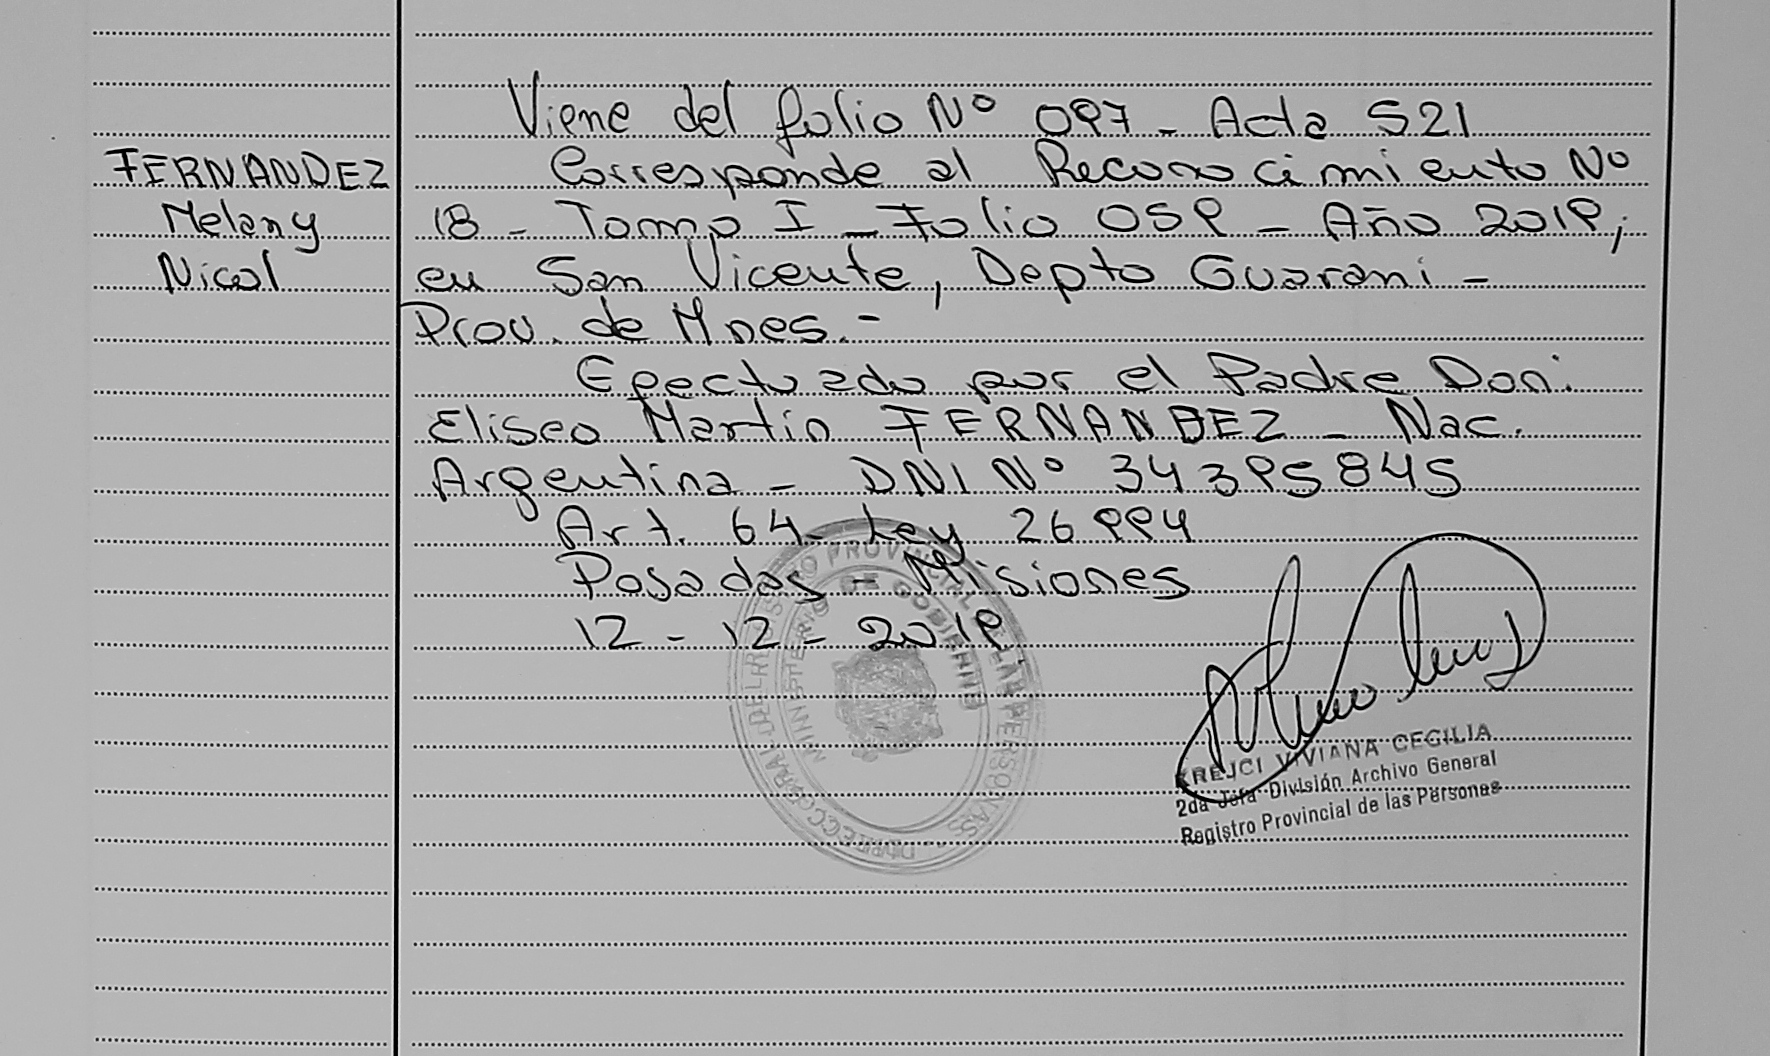 Viene del folio Nº 097 - Acta 521
FERNANDEZ
Melany
Nicol
Corresponde al Reconocimiento Nº
18 - Tomo I - Folio 059 - Año 2019,
en San Vicente, Depto Guarani -
Prov. de Mnes.-
Efectuado por el Padre Don:
Eliseo Martin FERNANDEZ - Nac.
Argentina - DNI Nº 34395845
Art. 64 - Ley 26994
Posadas - Misiones
12 - 12 - 2019
PROVINCIAL DE LAS PERSONAS
MINISTERIO DE GOBIERNO
KREJCI VIVIANA CECILIA
2da Jefa División Archivo General
Registro Provincial de las Personas